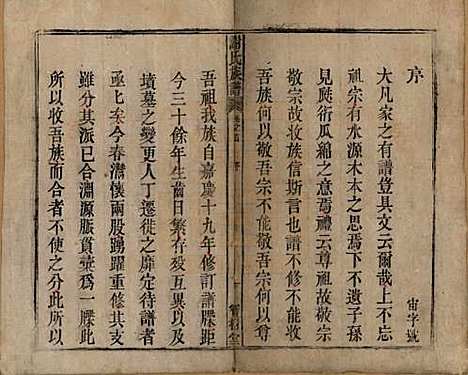 序
宙字號
大凡家之有譜豈具文云爾哉上不忘
祖宗有水源木本之思焉下不遺子孫
見瓞衍瓜綿之意焉禮云尊祖故敬宗
敬宗故收族信斯言也譜不修何以收
吾族何以敬吾宗不能敬吾宗何以尊
謝氏族譜
序
吾祖我族自嘉慶十九年修訂譜牒距
今三十餘年生齒日繁存殁互異以及
墳墓之變更人丁遷徙之靡定待譜者
亟亟矣今春澹懷兩股踴躍重修其支
雖分其派已合淵源脈貫彙為一牒此
所以收吾族而合者不使之分此所以